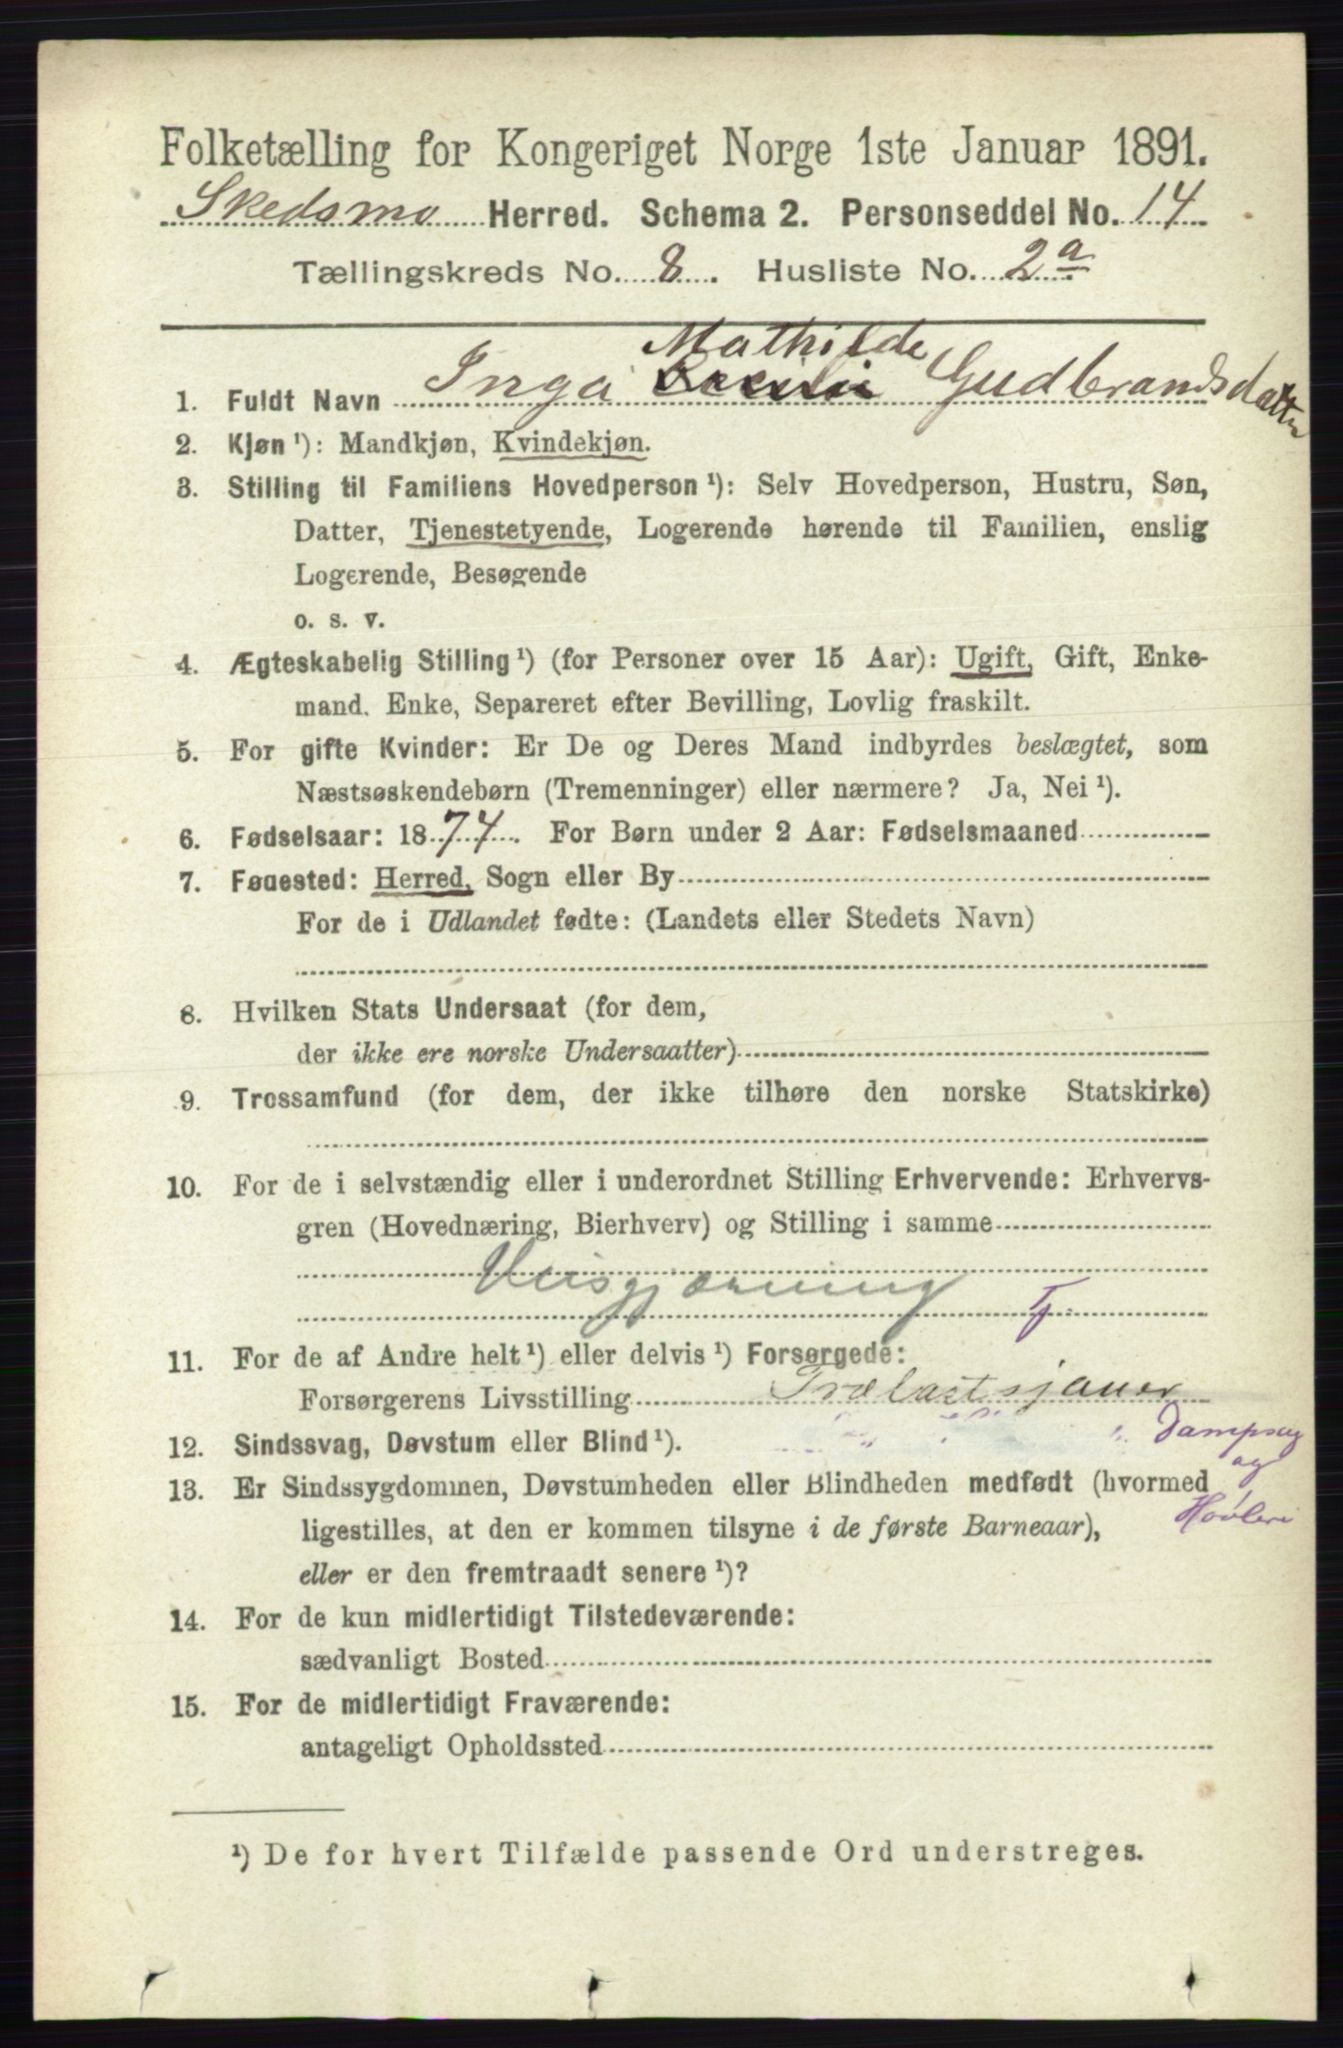 Folketælling for Kongeriget Norge 1ste Januar 1891.
Skedsmo Herred. Schema 2. Personseddel No. 14
Tællingskreds No. 8. Husliste No. 2a
Mathilde
1. Fuldt Navn Inga Gudbrandsdatter
2. Kjøn ¹): Mandkjøn, Kvindekjøn.
3. Stilling til Familiens Hovedperson ¹): Selv Hovedperson, Hustru, Søn,
Datter, Tjenestetyende, Logerende hørende til Familien, enslig
Logerende, Besøgende
o. s. v.
4. Ægteskabelig Stilling ¹) (for Personer over 15 Aar): Ugift, Gift, Enke-
mand. Enke, Separeret efter Bevilling, Lovlig fraskilt.
5. For gifte Kvinder: Er De og Deres Mand indbyrdes beslægtet, som
Næstsøskendebørn (Tremenninger) eller nærmere? Ja, Nei ¹).
6. Fødselsaar: 1874. For Børn under 2 Aar: Fødselsmaaned
7. Fødested: Herred, Sogn eller By
For de i Udlandet fødte: (Landets eller Stedets Navn)
8. Hvilken Stats Undersaat (for dem,
der ikke ere norske Undersaatter)
9. Trossamfund (for dem, der ikke tilhøre den norske Statskirke)
10. For de i selvstændig eller i underordnet Stilling Erhvervende: Erhvervs-
gren (Hovednæring, Bierhverv) og Stilling i samme
Husgjerning
Tj.
11. For de af Andre helt ¹) eller delvis ¹) Forsørgede:
Forsørgerens Livsstilling Trælastsjauer
12. Sindssvag, Døvstum eller Blind ¹). Dampsag
og
13. Er Sindssygdommen, Døvstumheden eller Blindheden medfødt (hvormed
Høvleri
ligestilles, at den er kommen tilsyne i de første Barneaar),
eller er den fremtraadt senere ¹)?
14. For de kun midlertidigt Tilstedeværende:
sædvanligt Bosted
15. For de midlertidigt Fraværende:
antageligt Opholdssted
¹) De for hvert Tilfælde passende Ord understreges.